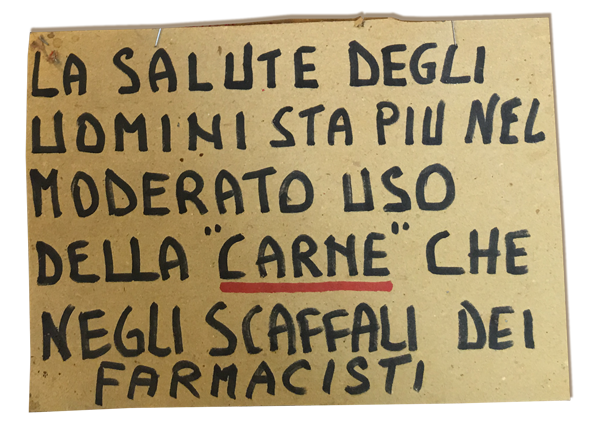 LA SALUTE DEGLI
UOMINI STA PIU NEL
MODERATO USO
DELLA "CARNE" CHE
NEGLI SCAFFALI DEI
FARMACISTI